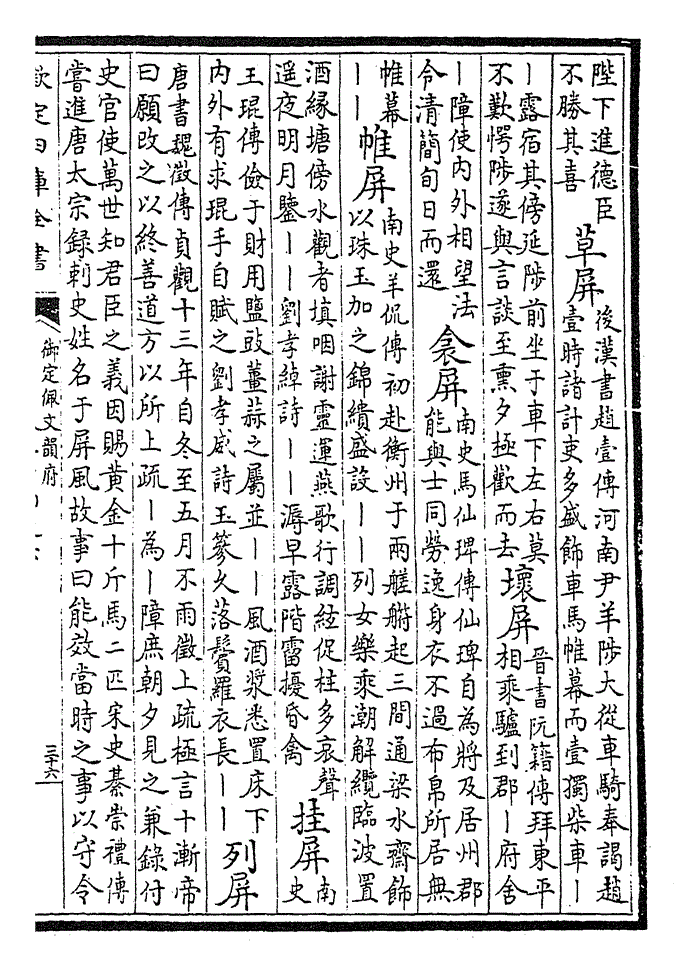 陛下進德臣
不勝其喜
草屏
後漢書趙壹傳河南尹羊陟大從車騎奉謁趙
壹時諸計吏多盛飾車馬帷幕而壹獨柴車丨
丨露宿其傍延陟前坐于車下左右莫
不歎愕陟遂與言談至熏夕極歡而去
壞屏
晉書阮籍傳拜東平
相乘驢到郡丨府舍
丨障使内外相望法
令清簡旬日而還
衾屏
南史馬仙琕傳仙琕自為將及居州郡
能與士同勞逸身衣不過布帛所居無
帷幕
丨丨
帷屏
南史羊侃傳初赴衡州于兩艖䑰起三間通梁水齋飾
以珠玉加之錦繢盛設丨丨列女樂乘潮解纜臨波置
酒緣塘傍水觀者填咽謝靈運燕歌行調絃促柱多哀聲
遥夜明月鑒丨丨劉孝綽詩丨丨溽早露階霤擾昏禽
挂屏
南
史
王琨傳儉于財用鹽豉薑蒜之屬並丨丨風酒漿悉置床下
内外有求琨手自賦之劉孝威詩玉篸久落鬢羅衣長丨丨
列屏
唐書魏徵傳貞觀十三年自冬至五月不雨徵上疏極言十漸帝
曰願改之以終善道方以所上疏丨為丨障庶朝夕見之兼錄付
史官使萬世知君臣之義因賜黄金十斤馬二匹宋史綦崇禮傳
嘗進唐太宗録刺史姓名于屏風故事曰能效當時之事以守令
欽定四庫全書
御定佩文韻府
三十六